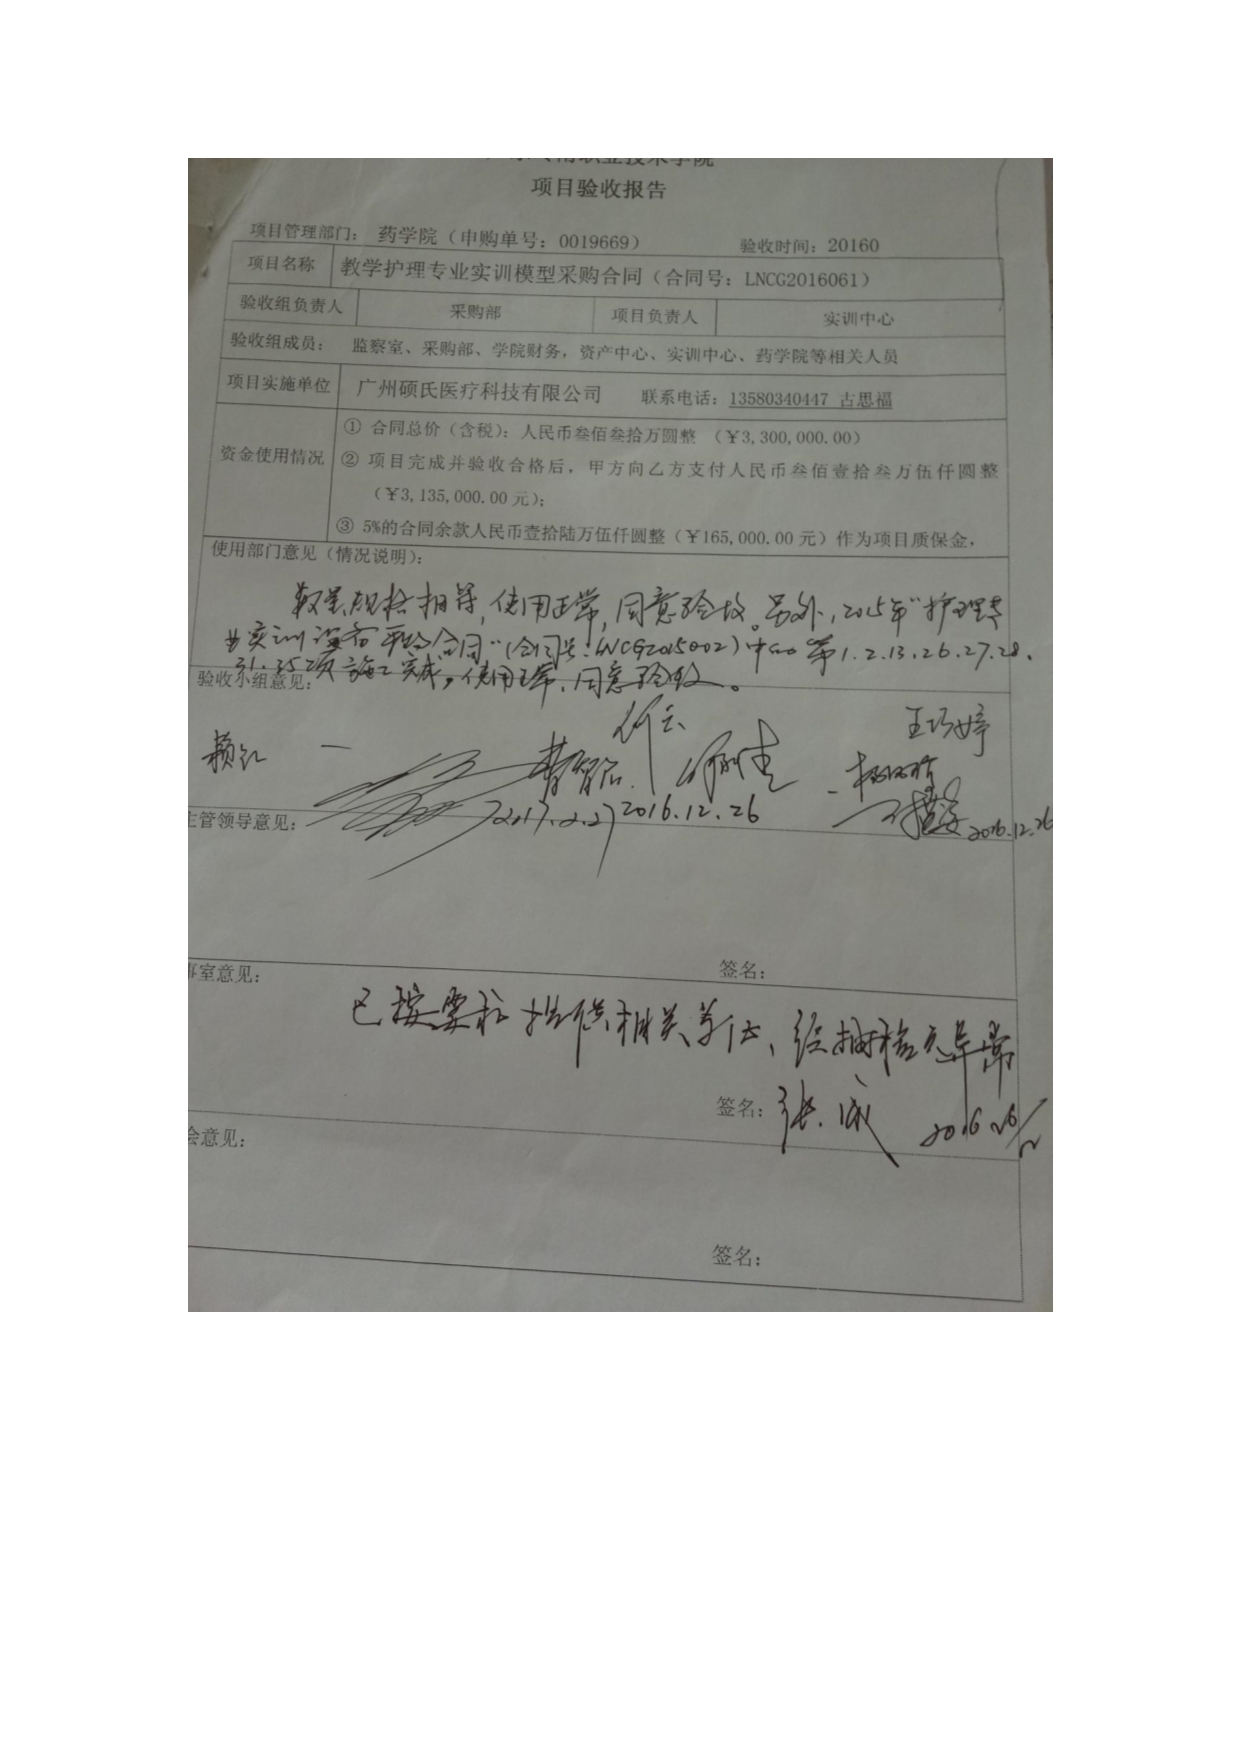 职业技术学院
项目验收报告
项目管理部门： 药学院（申购单号：0019669） 验收时间：20160
项目名称 教学护理专业实训模型采购合同（合同号：LNCG2016061）
验收组负责人 采购部 项目负责人 实训中心
验收组成员： 监察室、采购部、学院财务，资产中心、实训中心、药学院等相关人员
项目实施单位 广州硕氏医疗科技有限公司 联系电话：13580340447 古思福
资金使用情况
① 合同总价（含税）：人民币叁佰叁拾万圆整 （￥3,300,000.00）
② 项目完成并验收合格后，甲方向乙方支付人民币叁佰壹拾叁万伍仟圆整
（￥3,135,000.00 元）；
③ 5%的合同余款人民币壹拾陆万伍仟圆整（￥165,000.00 元）作为项目质保金，
使用部门意见（情况说明）：
数量、规格相符，使用正常，同意验收。另外，2015年"护理专
业实训设备采购合同"（合同号：LNCG2015002）中 第1.2.13.26.27.28.
31.35项施工完成，使用正常，同意验收。
验收小组意见：
王巧婷
2017.2.27 2016.12.26
2016.12.26
主管领导意见：
签名：
事室意见：
已按要求提供相关单位、经抽检无异常
签名： 张 成 2016
会意见：
签名：